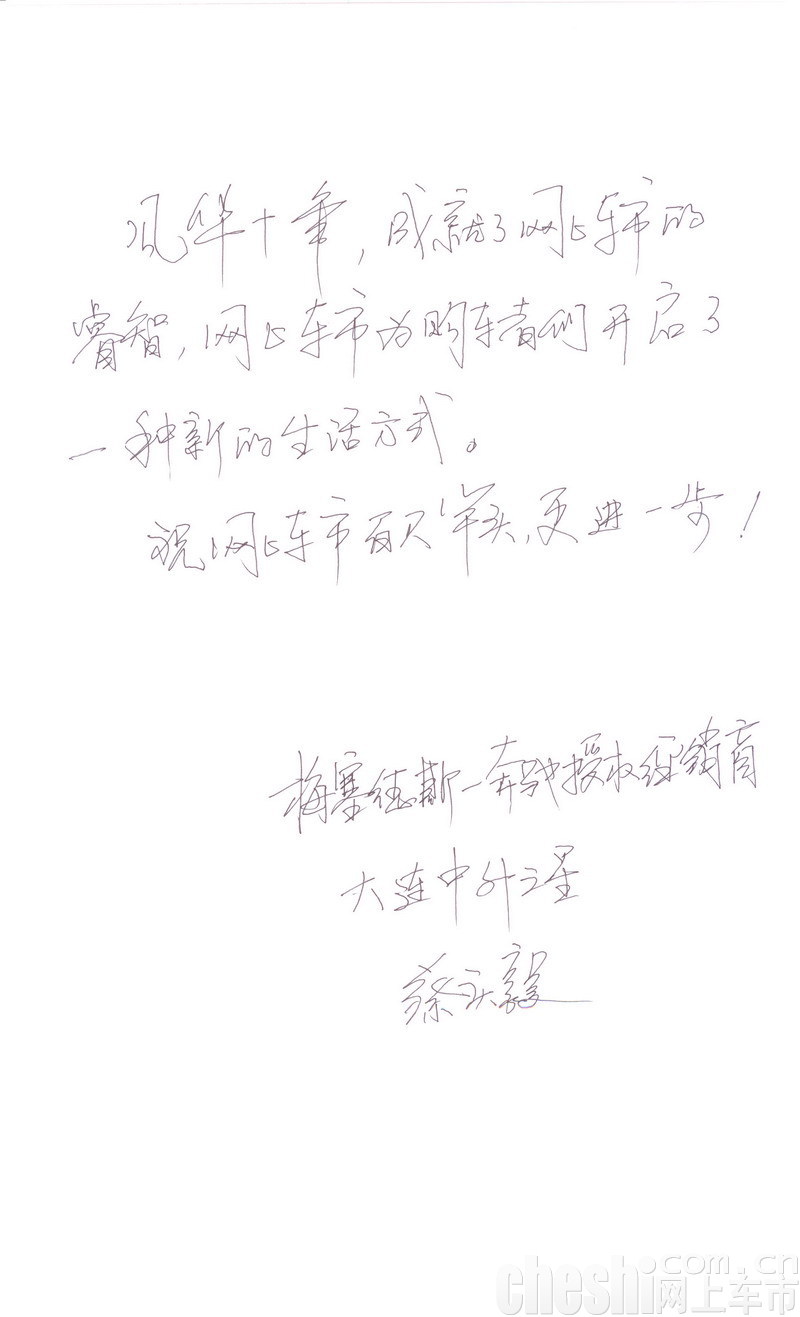 风华十年,成就了网上车市的
睿智,网上车市为购车者们开启了
一种新的生活方式。
祝网上车市百尺竿头,更进一步!
梅赛德斯-奔驰授权经销商
大连中升之星
蔡天毅
cheshi.com.cn
网上车市